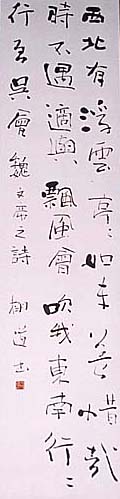 西北有浮雲亭〻如車蓋惜哉
時不遇適與飄風會吹我東南行〻
行至吳會 魏文帝之詩